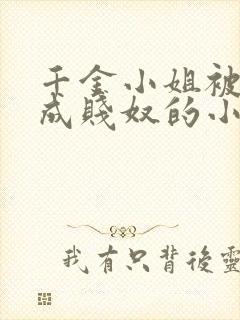 千金小姐被
成賤奴的小
我有只背後靈